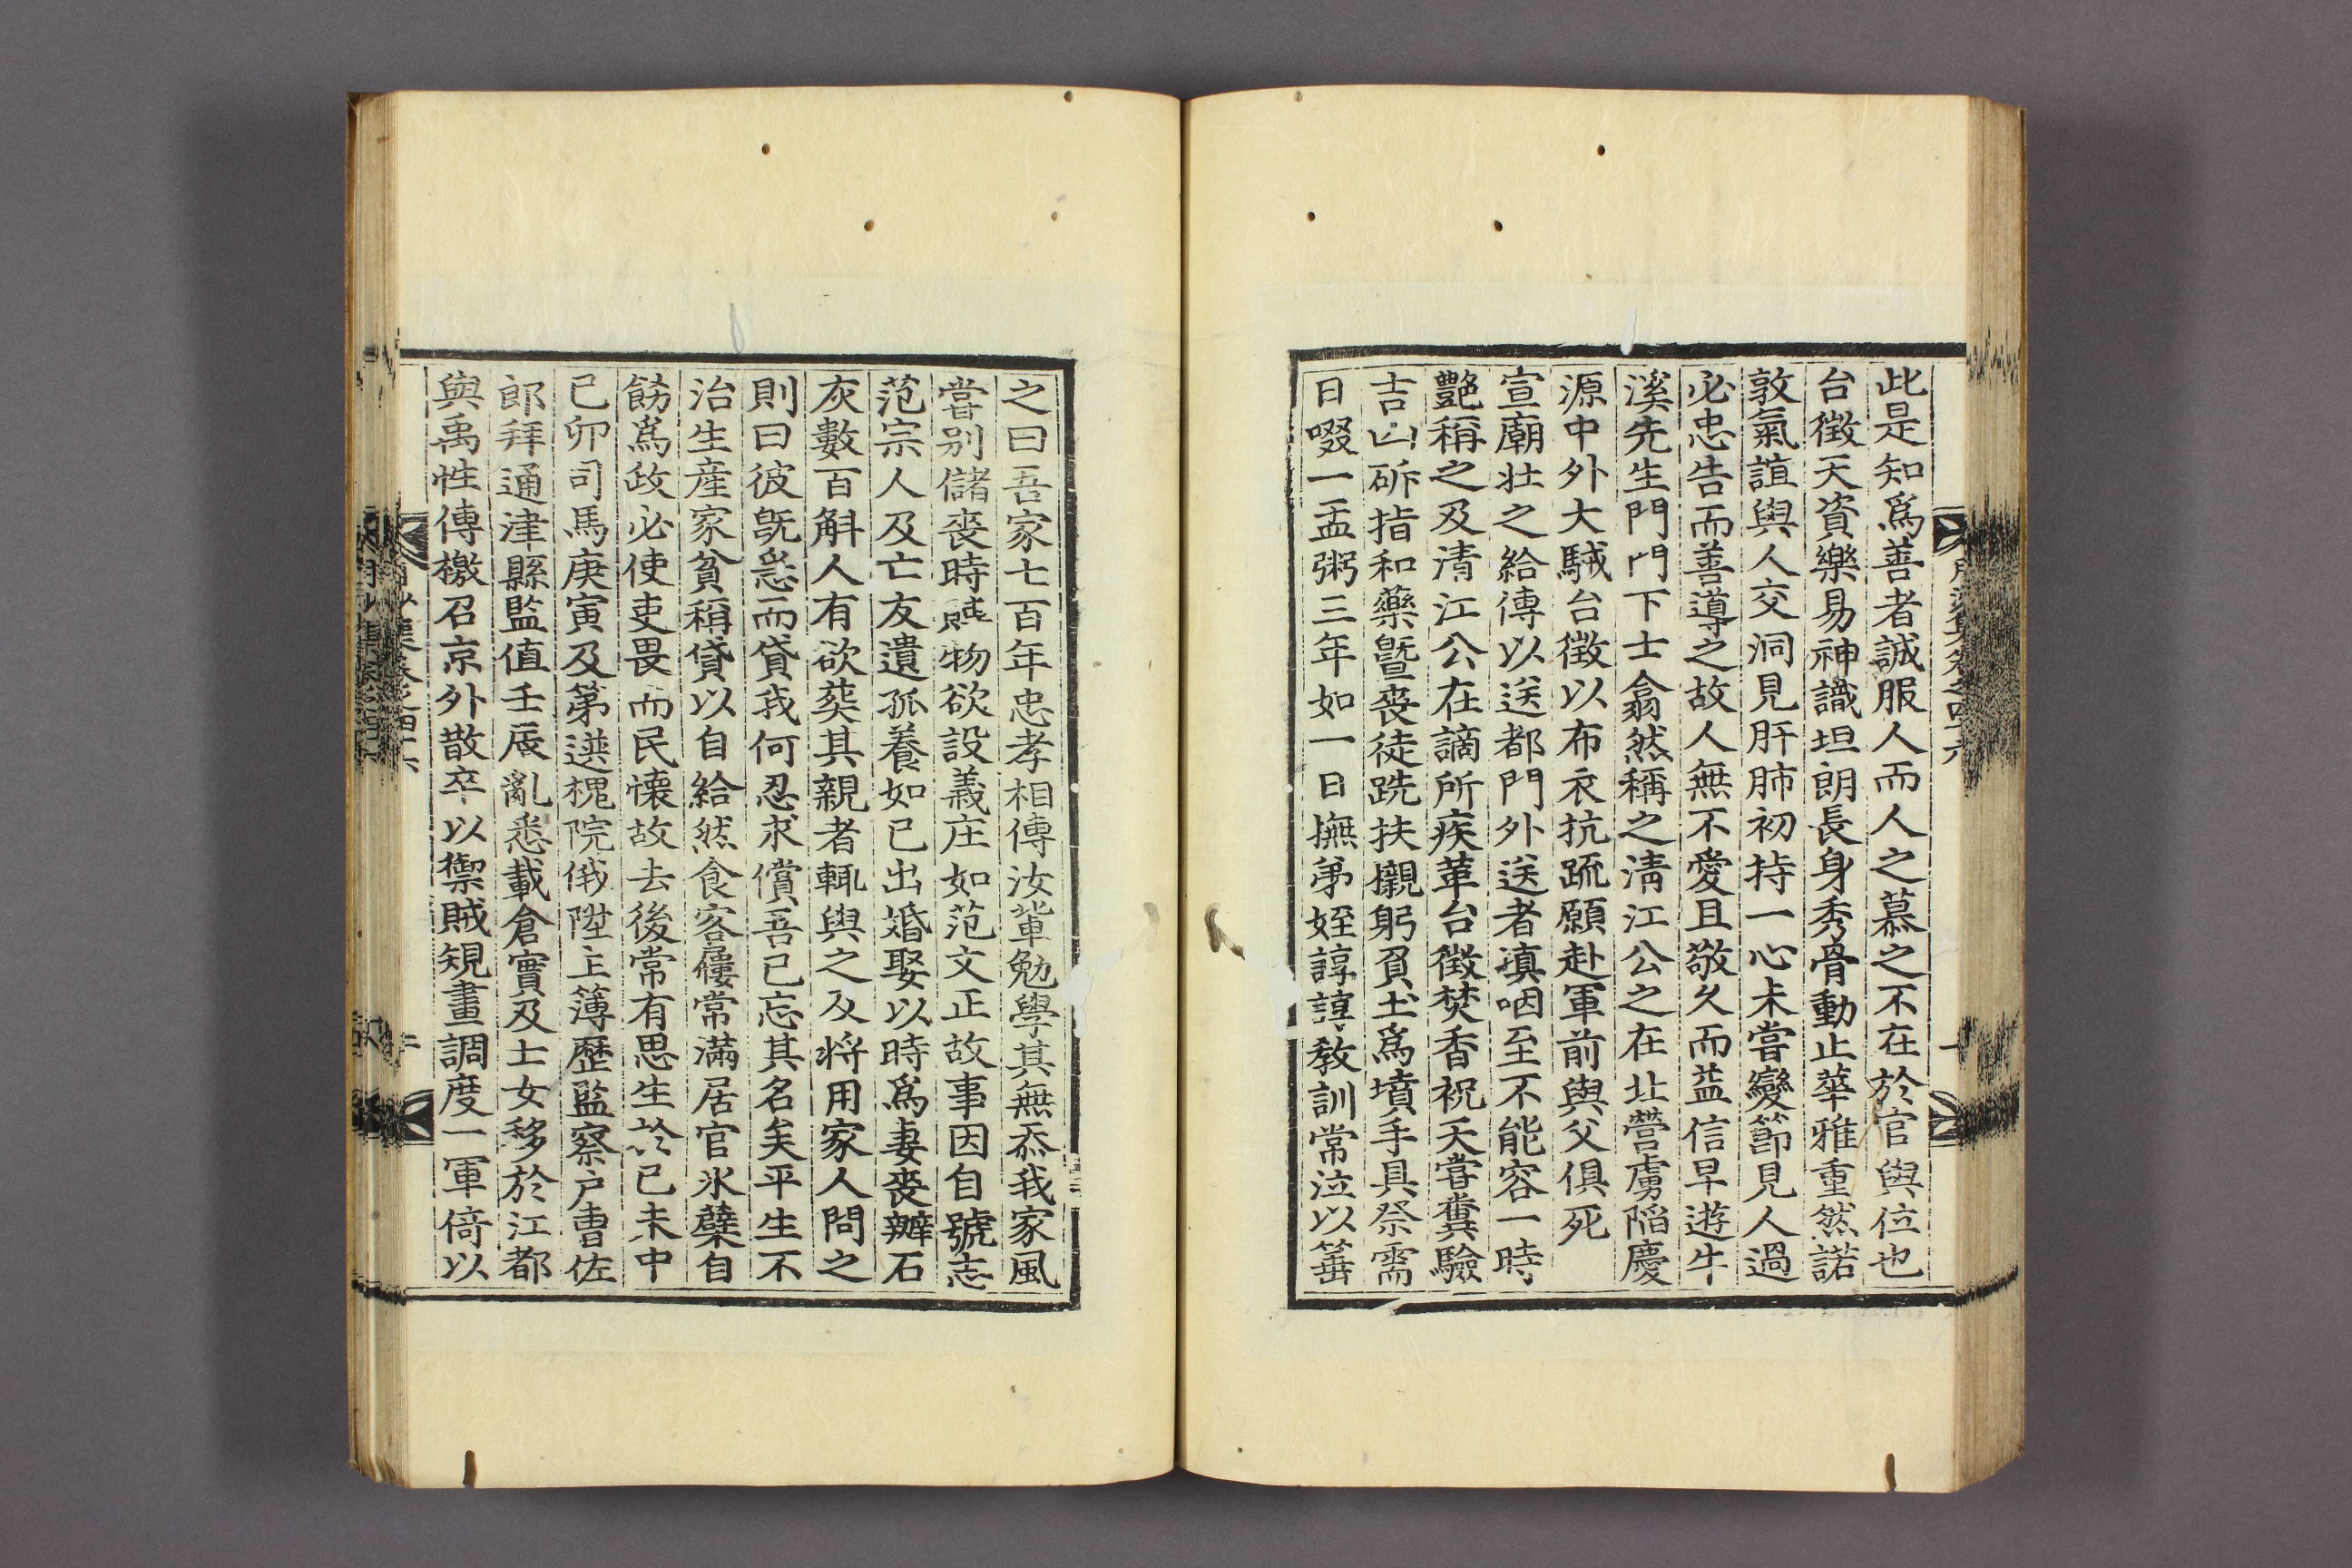 此是知爲善者誠服人而人之慕之不在於官與位也
台徵天資樂易神識坦朗長身秀骨動止華雅重然諾
敦氣誼與人交洞見肝肺初持一心未嘗變節見人過
必忠告而善導之故人無不愛且敬久而益信早遊牛
溪先生門門下士翕然稱之淸江公之在北營虜陷慶
源中外大駴台徵以布衣抗疏願赴軍前與父俱死
宣廟壯之給傳以送都門外送者塡咽至不能容一時
艶稱之及清江公在謫所疾革台徵焚香祝天嘗糞驗
吉凶斫指和藥曁喪徒跣扶櫬躬負土爲墳手具祭需
日啜一盂粥三年如一日撫弟姪諄諄敎訓常泣以箠
之曰吾家七百年忠孝相傳汝軰勉學其無忝我家風
嘗別儲喪時賻物欲設義庄如范文正故事因自號志
范宗人及亡友遺孤養如己出婚娶以時爲妻喪辦石
灰數百斛人有欲葬其親者輒與之及将用家人問之
則曰彼旣忘而貸我何忍求償吾已忘其名矣平生不
治生産家貧稱貸以自給然食客屨常滿居官氷蘗自
飭爲政必使吏畏而民懐故去後常有思生於己未中
已卯司馬庚寅及第選槐院俄陞主簿歷監察戶曺佐
郎拜通津縣監值壬辰亂悉載倉實及士女移於江都
與禹性傳檄召京外散卒以禦賊規畫調度一軍倚以